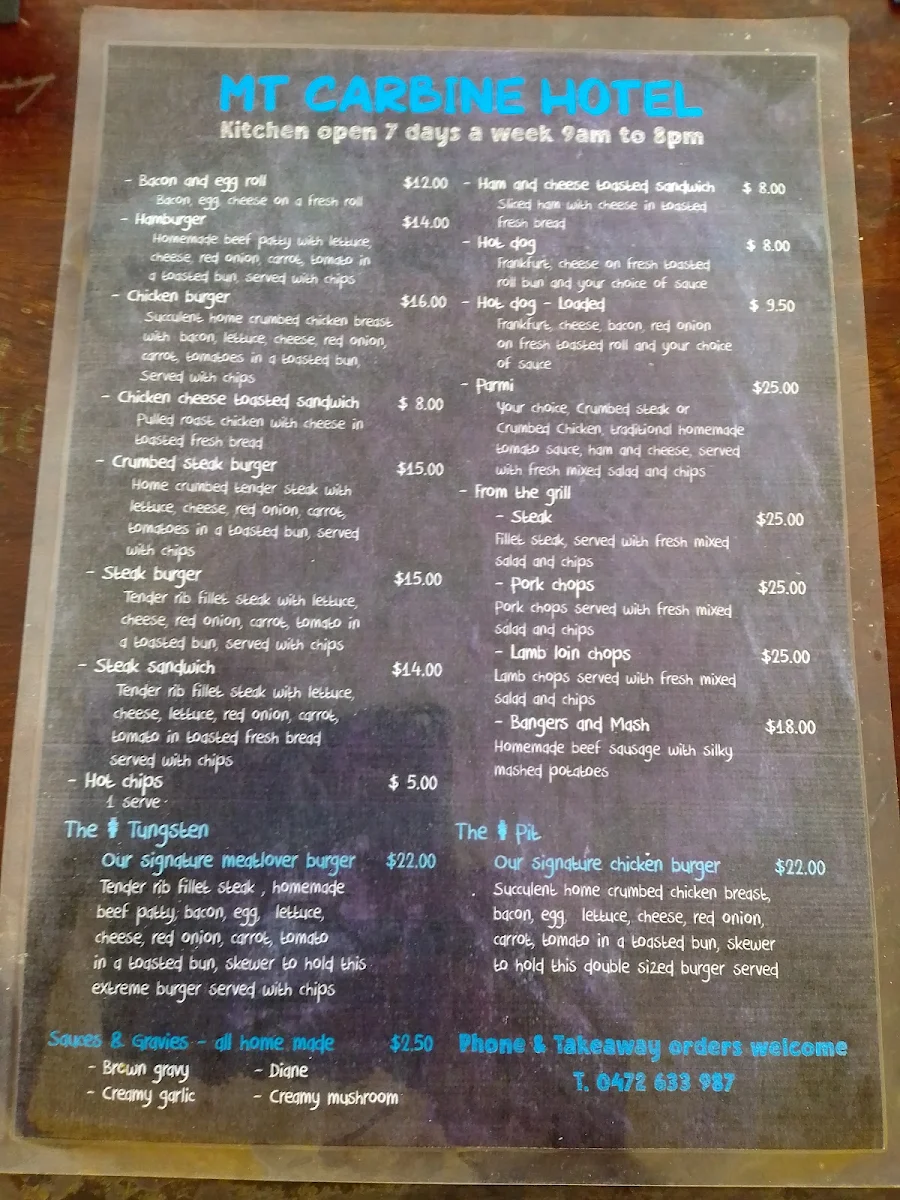 MT CARBINE HOTEL
Kitchen open 7 days a week 9am to 8pm
- Bacon and egg roll $12.00
Bacon, egg, cheese on a fresh roll
- Hamburger $14.00
Homemade beef patty with lettuce,
cheese, red onion, carrot, tomato in
a toasted bun, served with chips
- Chicken burger $16.00
Succulent home crumbed chicken breast
with bacon, lettuce, cheese, red onion,
carrot, tomatoes in a toasted bun,
Served with chips
- Chicken cheese toasted sandwich $ 8.00
Pulled roast chicken with cheese in
toasted fresh bread
- Crumbed steak burger $15.00
Home crumbed tender steak with
lettuce, cheese, red onion, carrot,
tomatoes in a toasted bun, served
with chips
- Steak burger $15.00
Tender rib fillet steak with lettuce,
cheese, red onion, carrot, tomato in
a toasted bun, served with chips
- Steak sandwich $14.00
Tender rib fillet steak with lettuce,
cheese, lettuce, red onion, carrot,
tomato in toasted fresh bread
served with chips
- Hot chips $ 5.00
1 serve
- Ham and cheese toasted sandwich $ 8.00
Sliced ham with cheese in toasted
fresh bread
- Hot dog $ 8.00
Frankfurt, cheese on fresh toasted
roll bun and your choice of sauce
- Hot dog - Loaded $ 9.50
Frankfurt, cheese, bacon, red onion
on fresh toasted roll and your choice
of sauce
- Parmi $25.00
Your choice, Crumbed steak or
Crumbed Chicken, traditional homemade
tomato sauce, ham and cheese, served
with fresh mixed salad and chips
- From the grill
- Steak $25.00
Fillet steak, served with fresh mixed
salad and chips
- Pork chops $25.00
Pork chops served with fresh mixed
salad and chips
- Lamb loin chops $25.00
Lamb chops served with fresh mixed
salad and chips
- Bangers and Mash $18.00
Homemade beef sausage with silky
mashed potatoes
The Tungsten
Our signature meatlover burger $22.00
Tender rib fillet steak , homemade
beef patty, bacon, egg, lettuce,
cheese, red onion, carrot, tomato
in a toasted bun, skewer to hold this
extreme burger served with chips
The Pit
Our signature chicken burger $22.00
Succulent home crumbed chicken breast,
bacon, egg, lettuce, cheese, red onion,
carrot, tomato in a toasted bun, skewer
to hold this double sized burger served
Sauces & Gravies - all home made $2.50
- Brown gravy - Diane
- Creamy garlic - Creamy mushroom
Phone & Takeaway orders welcome
T. 0472 633 987